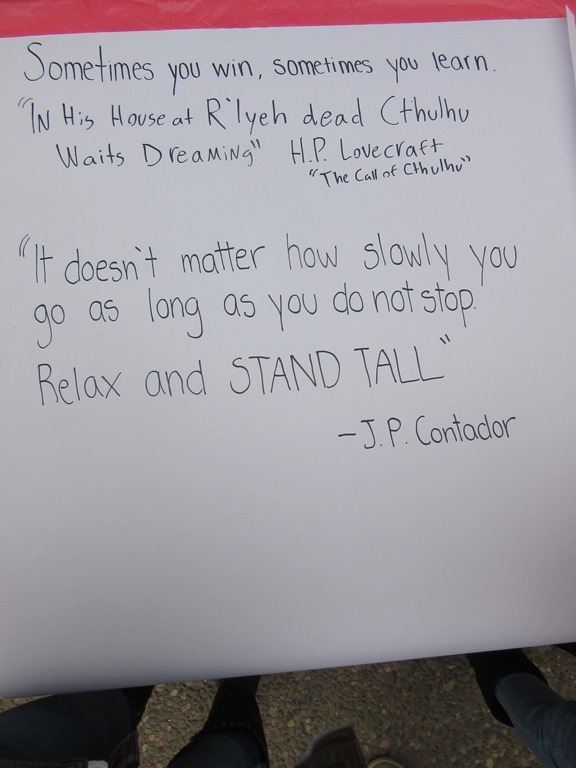 Sometimes you win, sometimes you learn.
"In His House at R'lyeh dead Cthulhu
Waits Dreaming" H.P. Lovecraft
"The Call of Cthulhu"
"It doesn't matter how slowly you
go as long as you do not stop.
Relax and STAND TALL"
-J.P. Contador